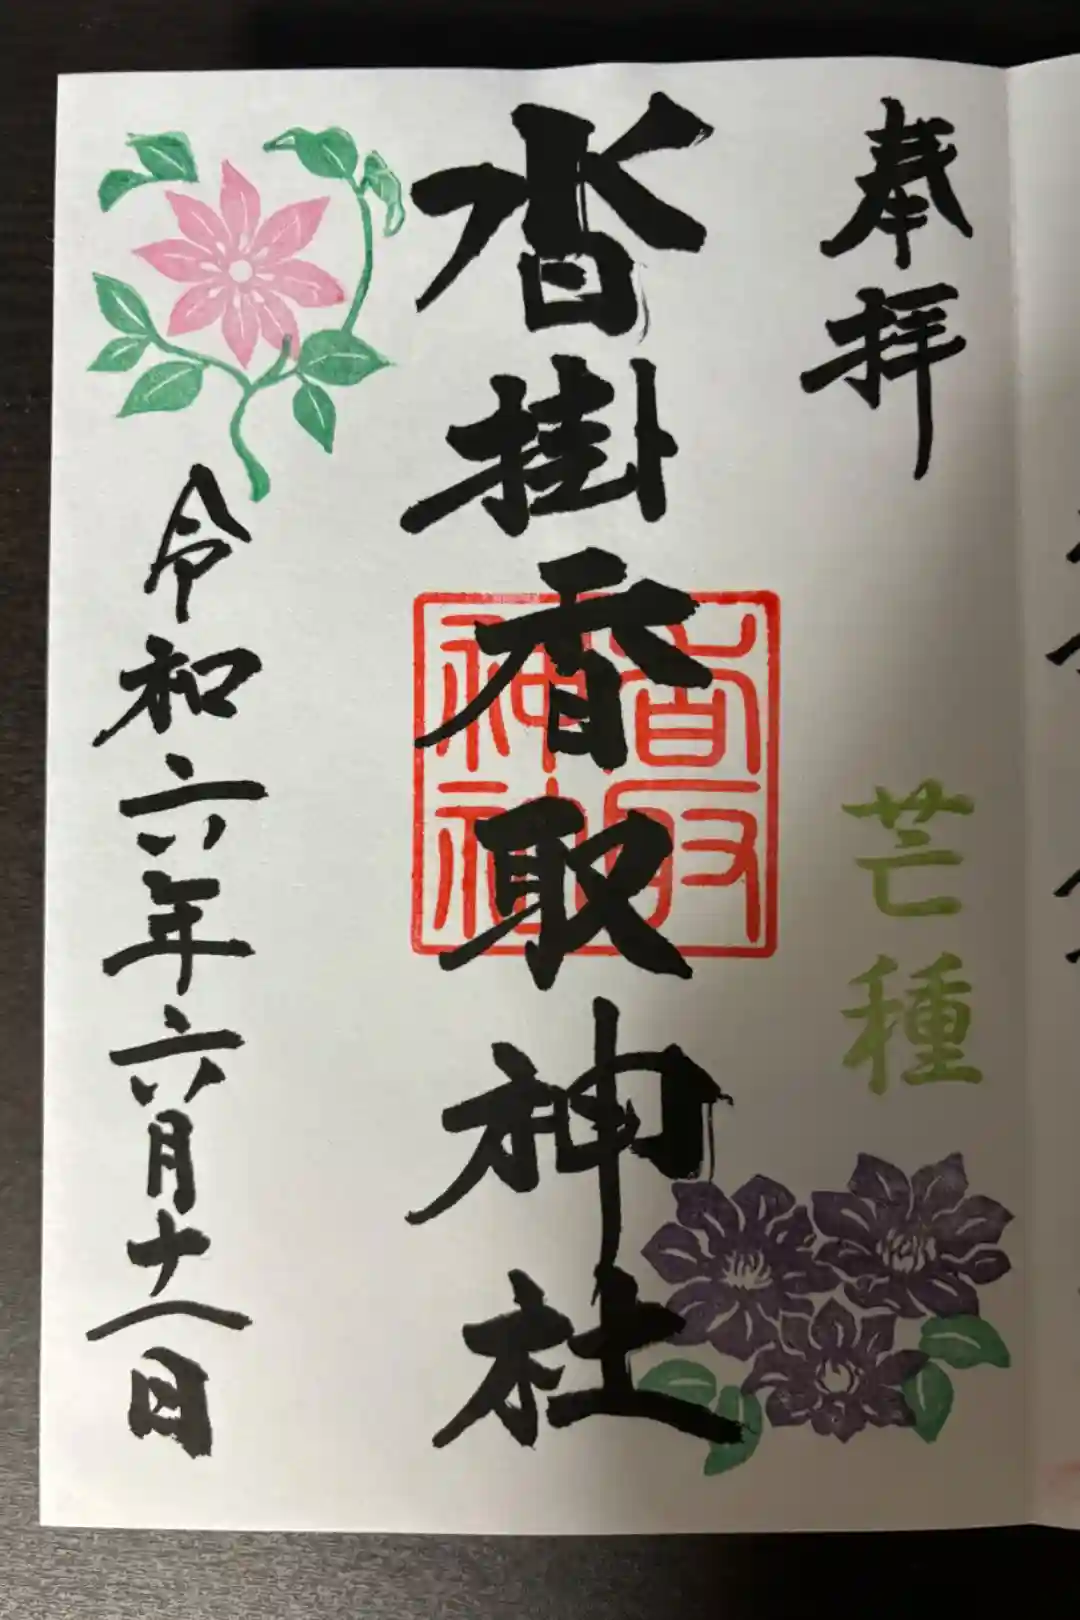 奉拝
芒種
沓掛香取神社
香取
神社
令和六年六月十八日